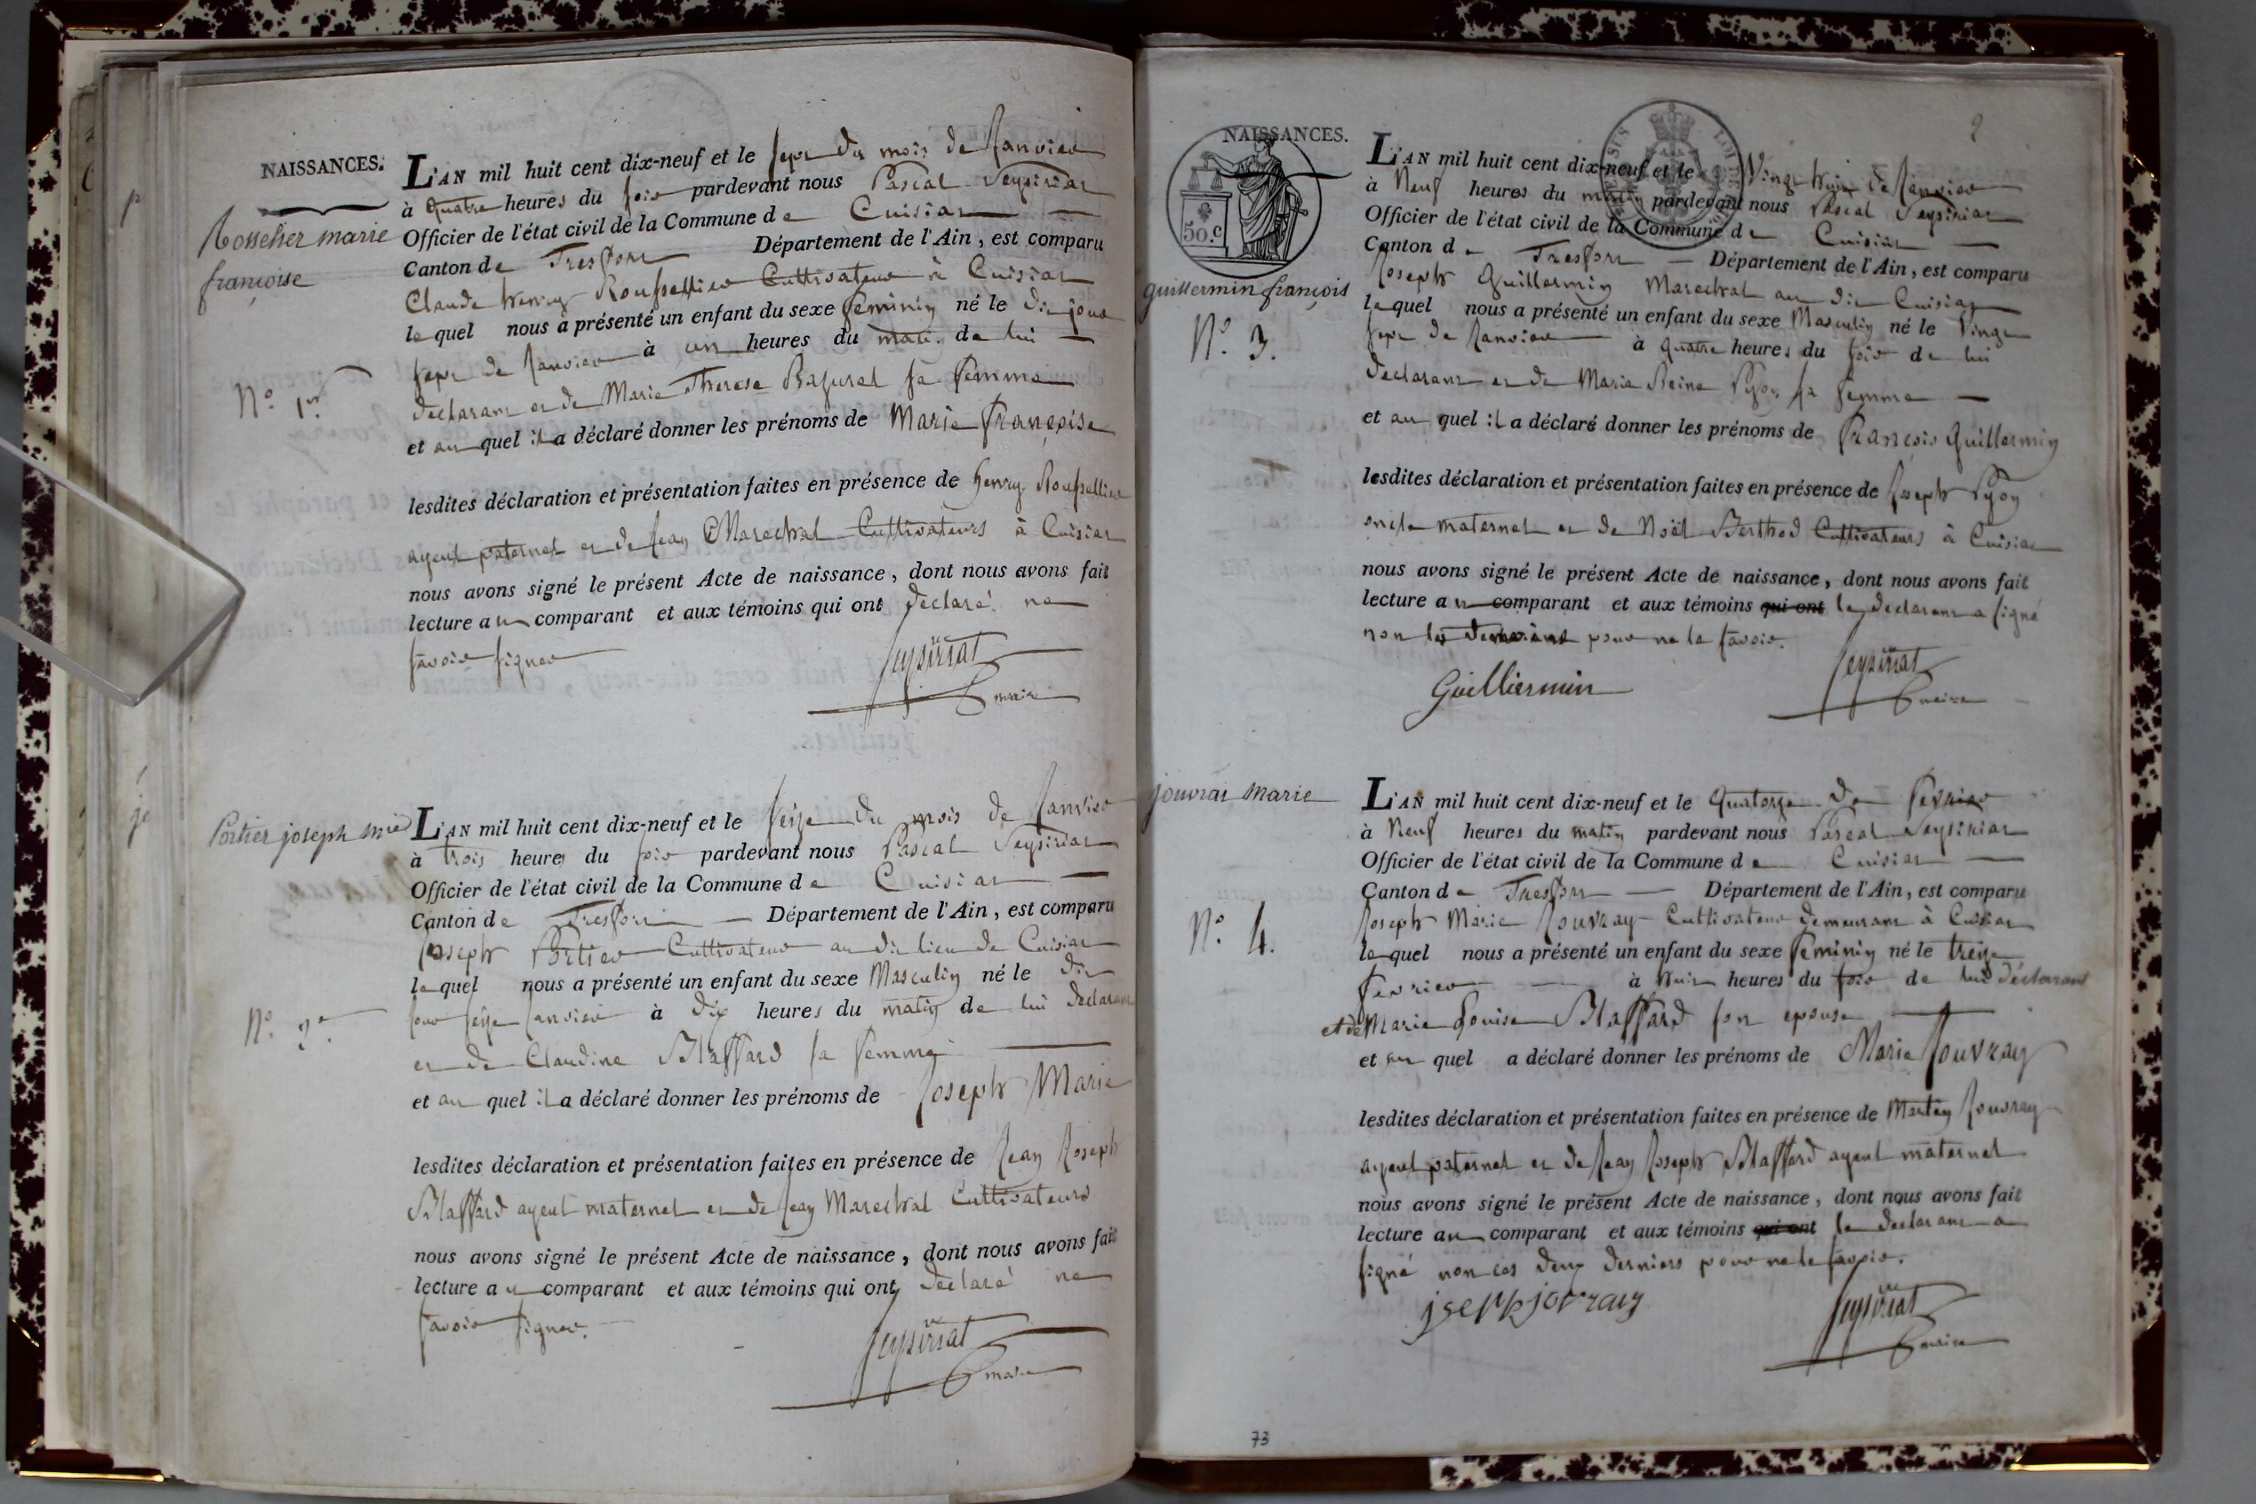 NAISSANCES.
Rosselier marie
françoise
N.° 1.er
L'AN mil huit cent dix-neuf et le sept du mois de Janvier
à quatre heures du soir pardevant nous Pascal Seysiriat
Officier de l'état civil de la Commune de Cuisiat
Canton de Treffort Département de l'Ain, est comparu
Claude henry Rousselier Cultivateur à Cuisiat
lequel nous a présenté un enfant du sexe feminin né le dit jour
sept de Janvier à un heures du mati. de lui
declarant et de Marie Therese Bazurel sa femme
et auquel il a déclaré donner les prénoms de Marie françoise
lesdites déclaration et présentation faites en présence de henry Roussellier
ayeul paternel et de Jean Marechal Cultivateurs à Cuisiat
nous avons signé le présent Acte de naissance, dont nous avons fait
lecture au comparant et aux témoins qui ont declaré ne
savoir signer
Seysiriat
maire
Portier joseph mie
N.° 2.e
L'AN mil huit cent dix-neuf et le seize du mois de Janvier
à trois heures du soir pardevant nous Pascal Seysiriat
Officier de l'état civil de la Commune de Cuisiat
Canton de Treffort Département de l'Ain, est comparu
Joseph Portier Cultivateur au dit lieu de Cuisiat
lequel nous a présenté un enfant du sexe Masculin né le dit
jour seize Janvier à dix heures du matin de lui declarant
et de Claudine Blaffard sa femme
et au quel il a déclaré donner les prénoms de Joseph Marie
lesdites déclaration et présentation faites en présence de Jean Joseph
Blaffard ayeul maternel et de Jean Marechal Cultivateurs
nous avons signé le présent Acte de naissance, dont nous avons fait
lecture au comparant et aux témoins qui ont declaré ne
savoir signer.
Seysiriat
maire
2
NAISSANCES.
50.c
guillermin françois
N.° 3.
L'AN mil huit cent dix-neuf et le Vingt huit de Janvier
à Neuf heures du matin pardevant nous Pascal Seysiriat
Officier de l'état civil de la Commune de Cuisiat
Canton de Treffort Département de l'Ain, est comparu
Joseph Guillermin Marechal au dit Cuisiat
lequel nous a présenté un enfant du sexe Masculin né le Vingt
sept de Janvier à quatre heures du soir de lui
declarant et de Marie Reine Pyon sa femme
et au quel il a déclaré donner les prénoms de François Guillermin
lesdites déclaration et présentation faites en présence de Joseph Pyon
oncle maternel et de Noël Berthod Cultivateurs à Cuisiat
nous avons signé le présent Acte de naissance, dont nous avons fait
lecture au comparant et aux témoins qui ont le declarant a signé
non les temoins pour ne le savoir.
Guilliermin
Seysiriat
maire
jouvrai marie
N.° 4.
L'AN mil huit cent dix-neuf et le quatorze de fevrier
à Neuf heures du matin pardevant nous Pascal Seysiriat
Officier de l'état civil de la Commune de Cuisiat
Canton de Treffort Département de l'Ain, est comparu
Joseph Marie Jouvray Cultivateur demeurant à Cuisiat
lequel nous a présenté un enfant du sexe feminin né le treize
fevrier à huit heures du soir de lui déclarant
et de Marie Louise Blaffard son epouse
et au quel a déclaré donner les prénoms de Marie Jouvray
lesdites déclaration et présentation faites en présence de Martin Jouvray
ayeul paternel et de Jean Joseph Blaffard ayeul maternel
nous avons signé le présent Acte de naissance, dont nous avons fait
lecture au comparant et aux témoins qui ont le declarant a
signé non les deux derniers pour ne le savoir.
jseph jovray
Seysiriat
maire
73